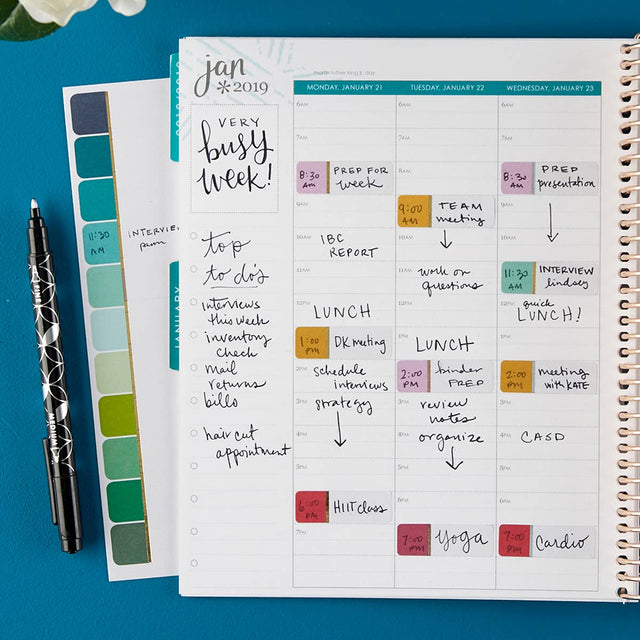 martin luther king jr. day
jan
*2019
MONDAY, JANUARY 21
TUESDAY, JANUARY 22
WEDNESDAY, JANUARY 23
VERY
busy
week!
top
to do's
interviews
this week
inventory
check
mail
returns
hair cut
appointment
6AM
7AM
8:30
AM
PREP FOR
week
9AM
10AM
IBC
REPORT
11AM
12PM
LUNCH
1:00
PM
DK meeting
2PM
schedule
interviews
3PM
strategy
4PM
5PM
6:00
PM
HIIT class
7PM
6AM
7AM
8AM
9:00
AM
TEAM
meeting
10AM
11AM
work on
questions
12PM
1PM
LUNCH
2:00
PM
binder
PREP
3PM
review
notes
4PM
organize
5PM
6PM
7:00
PM
yoga
6AM
7AM
8:30
AM
PREP
presentation
9AM
10AM
11:30
AM
INTERVIEW
lindsey
12PM
quick
LUNCH!
1PM
2:00
PM
meeting
with KATE
3PM
4PM
CASD
5PM
6PM
7:00
PM
Cardio
11:30
AM
INTERVIEW
JANUARY